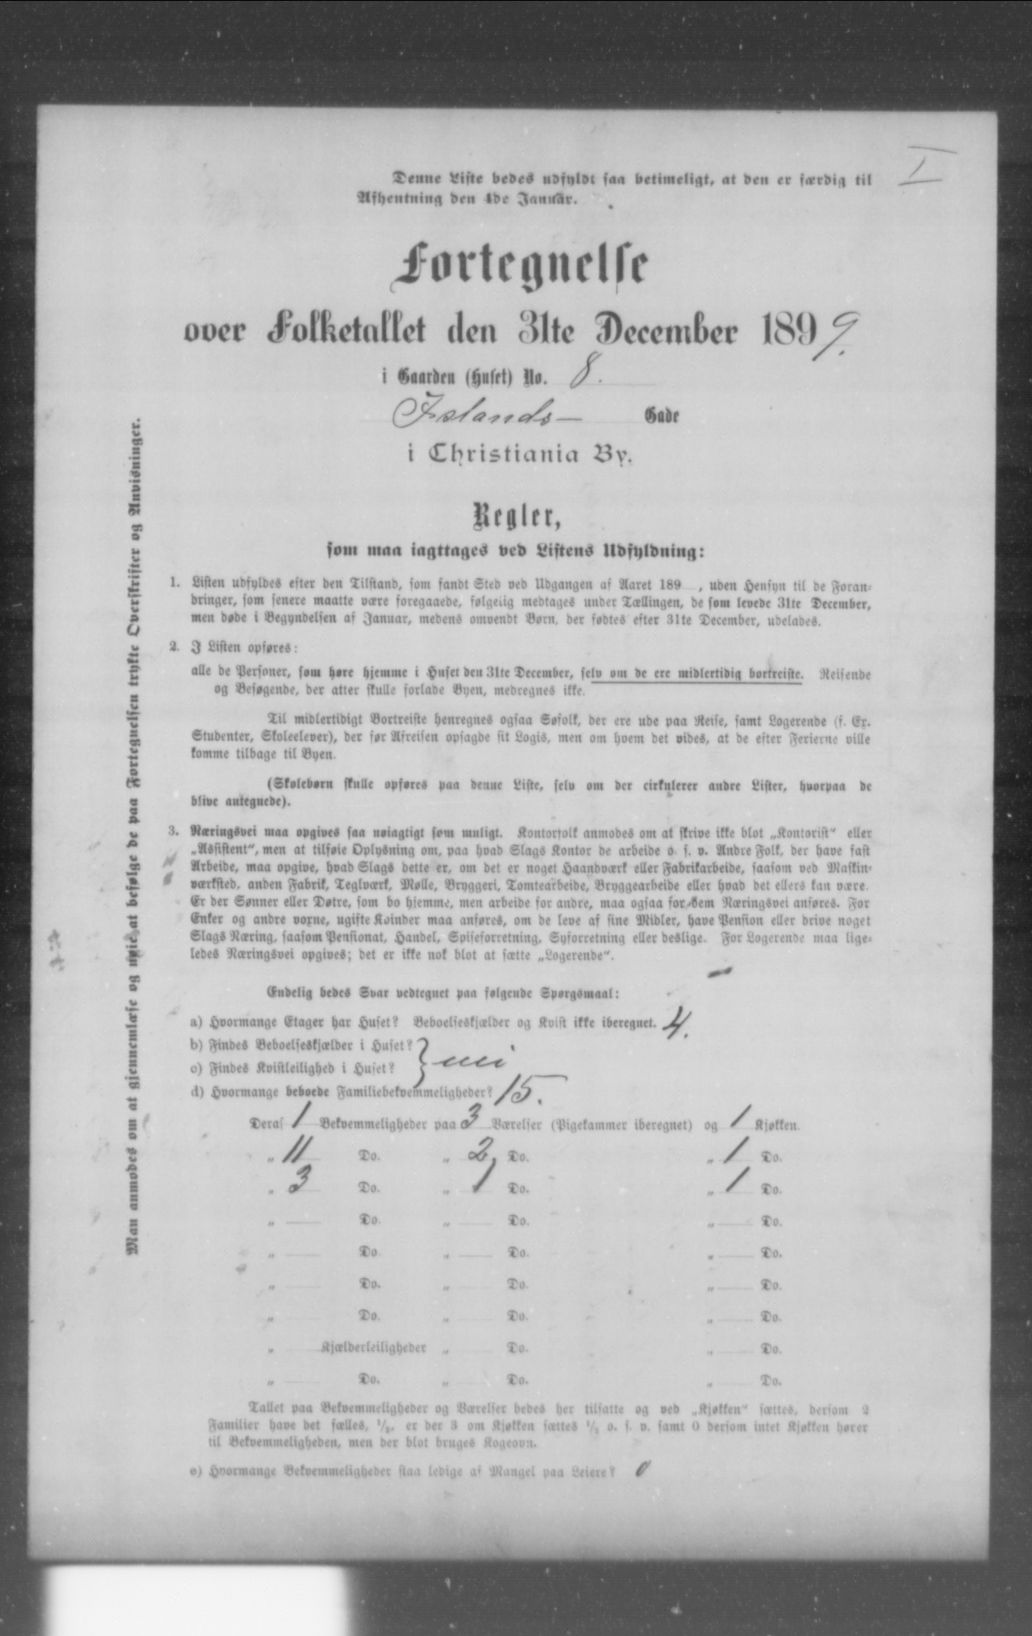 I
Denne Liste bedes udfyldt saa betimeligt, at den er færdig til
Afhentning den 4de Januar.
Fortegnelse
over Folketallet den 31te December 1899.
i Gaarden (Huset) No. 8.
Islands- Gade
i Christiania By.
Regler,
som maa iagttages ved Listens Udfyldning:
1. Listen udfyldes efter den Tilstand, som fandt Sted ved Udgangen af Aaret 189 , uden Hensyn til de Foran-
dringer, som senere maatte være foregaaede, følgelig medtages under Tællingen, de som levede 31te December,
men døde i Begyndelsen af Januar, medens omvendt Børn, der fødtes efter 31te December, udelades.
2. I Listen opføres:
alle de Personer, som høre hjemme i Huset den 31te December, selv om de ere midlertidig bortreiste. Reisende
og Besøgende, der atter skulle forlade Byen, medregnes ikke.
Til midlertidigt Bortreiste henregnes ogsaa Søfolk, der ere ude paa Reise, samt Logerende (f. Ex.
Studenter, Skoleelever), der før Afreisen opsagde sit Logis, men om hvem det vides, at de efter Ferierne ville
komme tilbage til Byen.
(Skolebørn skulle opføres paa denne Liste, selv om der cirkulerer andre Lister, hvorpaa de
blive antegnede).
3. Næringsvei maa opgives saa nøiagtigt som muligt. Kontorfolk anmodes om at skrive ikke blot „Kontorist“ eller
„Assistent“, men at tilføie Oplysning om, paa hvad Slags Kontor de arbeide o. s. v. Andre Folk, der have fast
Arbeide, maa opgive, hvad Slags dette er, om det er noget Haandværk eller Fabrikarbeide, saasom ved Maskin-
værksted, anden Fabrik, Teglværk, Mølle, Bryggeri, Tomtearbeide, Bryggearbeide eller hvad det ellers kan være.
Er der Sønner eller Døtre, som bo hjemme, men arbeide for andre, maa ogsaa for dem Næringsvei anføres. For
Enker og andre voxne, ugifte Kvinder maa anføres, om de leve af sine Midler, have Pension eller drive noget
Slags Næring, saasom Pensionat, Handel, Spiseforretning, Syforretning eller deslige. For Logerende maa lige-
ledes Næringsvei opgives; det er ikke nok blot at sætte „Logerende“.
Endelig bedes Svar vedtegnet paa følgende Spørgsmaal:
a) Hvormange Etager har Huset? Beboelseskjælder og Kvist ikke iberegnet. 4.
b) Findes Beboelseskjælder i Huset?
c) Findes Kvistleilighed i Huset? } nei
d) Hvormange beboede Familiebekvemmeligheder? 15.
Deraf 1 Bekvemmeligheder paa 3 Værelser (Pigekammer iberegnet) og 1 Kjøkken.
„ 11 Do. „ 2, Do. „ 1 Do.
„ 3 Do. „ 1 Do. „ 1 Do.
„ Do. „ Do. „ Do.
„ Do. „ Do. „ Do.
„ Do. „ Do. „ Do.
„ Do. „ Do. „ Do.
„ Kjælderleiligheder „ Do. „ Do.
„ Do. „ Do. „ Do.
Tallet paa Bekvemmeligheder og Værelser bedes her tilsatte og ved „Kjøkken“ sættes, dersom 2
Familier have det fælles, 1/2, er der 3 om Kjøkken sættes 1/3 o. s. v. samt 0 dersom intet Kjøkken hører
til Bekvemmeligheden, men der blot bruges Kogeovn.
e) Hvormange Bekvemmeligheder staa ledige af Mangel paa Leiere? 0
Man anmodes om at gjennemlæse og nøie at befølge de paa Fortegnelsen trykte Overskrifter og Anvisninger.